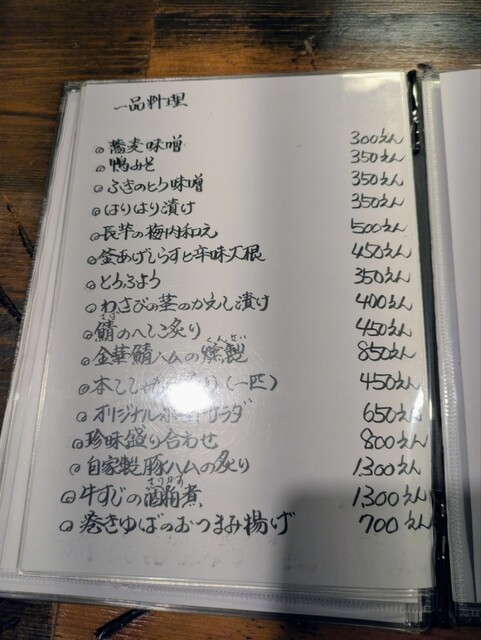 一品料理
◎蕎麦味噌 300えん
◎鴨みそ 350えん
◎ふきのとう味噌 350えん
◎はりはり漬け 350えん
◎長芋の梅肉和え 500えん
◎釜あげしらすと辛味大根 450えん
◎とうふよう 350えん
◎わさびの茎のかえし漬け 400えん
さば
◎鯖のへしこ炙り 450えん
くんせい
◎金華鯖ハムの燻製 850えん
◎本ししゃも (一匹) 450えん
◎オリジナル サラダ 650えん
◎珍味盛り合わせ 800えん
◎自家製豚ハムの炙り 1300えん
さけかす
◎牛すじの酒粕煮 1300えん
◎巻きゆばのおつまみ揚げ 700えん